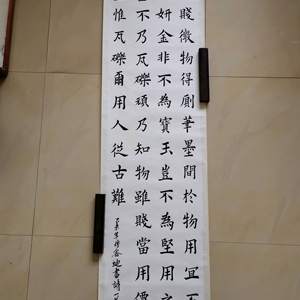 賤微物得厠筆墨間於物用宜不
妍金非不為寶玉豈不為堅用之
不乃瓦礫頑乃知物雖賤當用價
惟瓦礫爾用人從古難
書詩